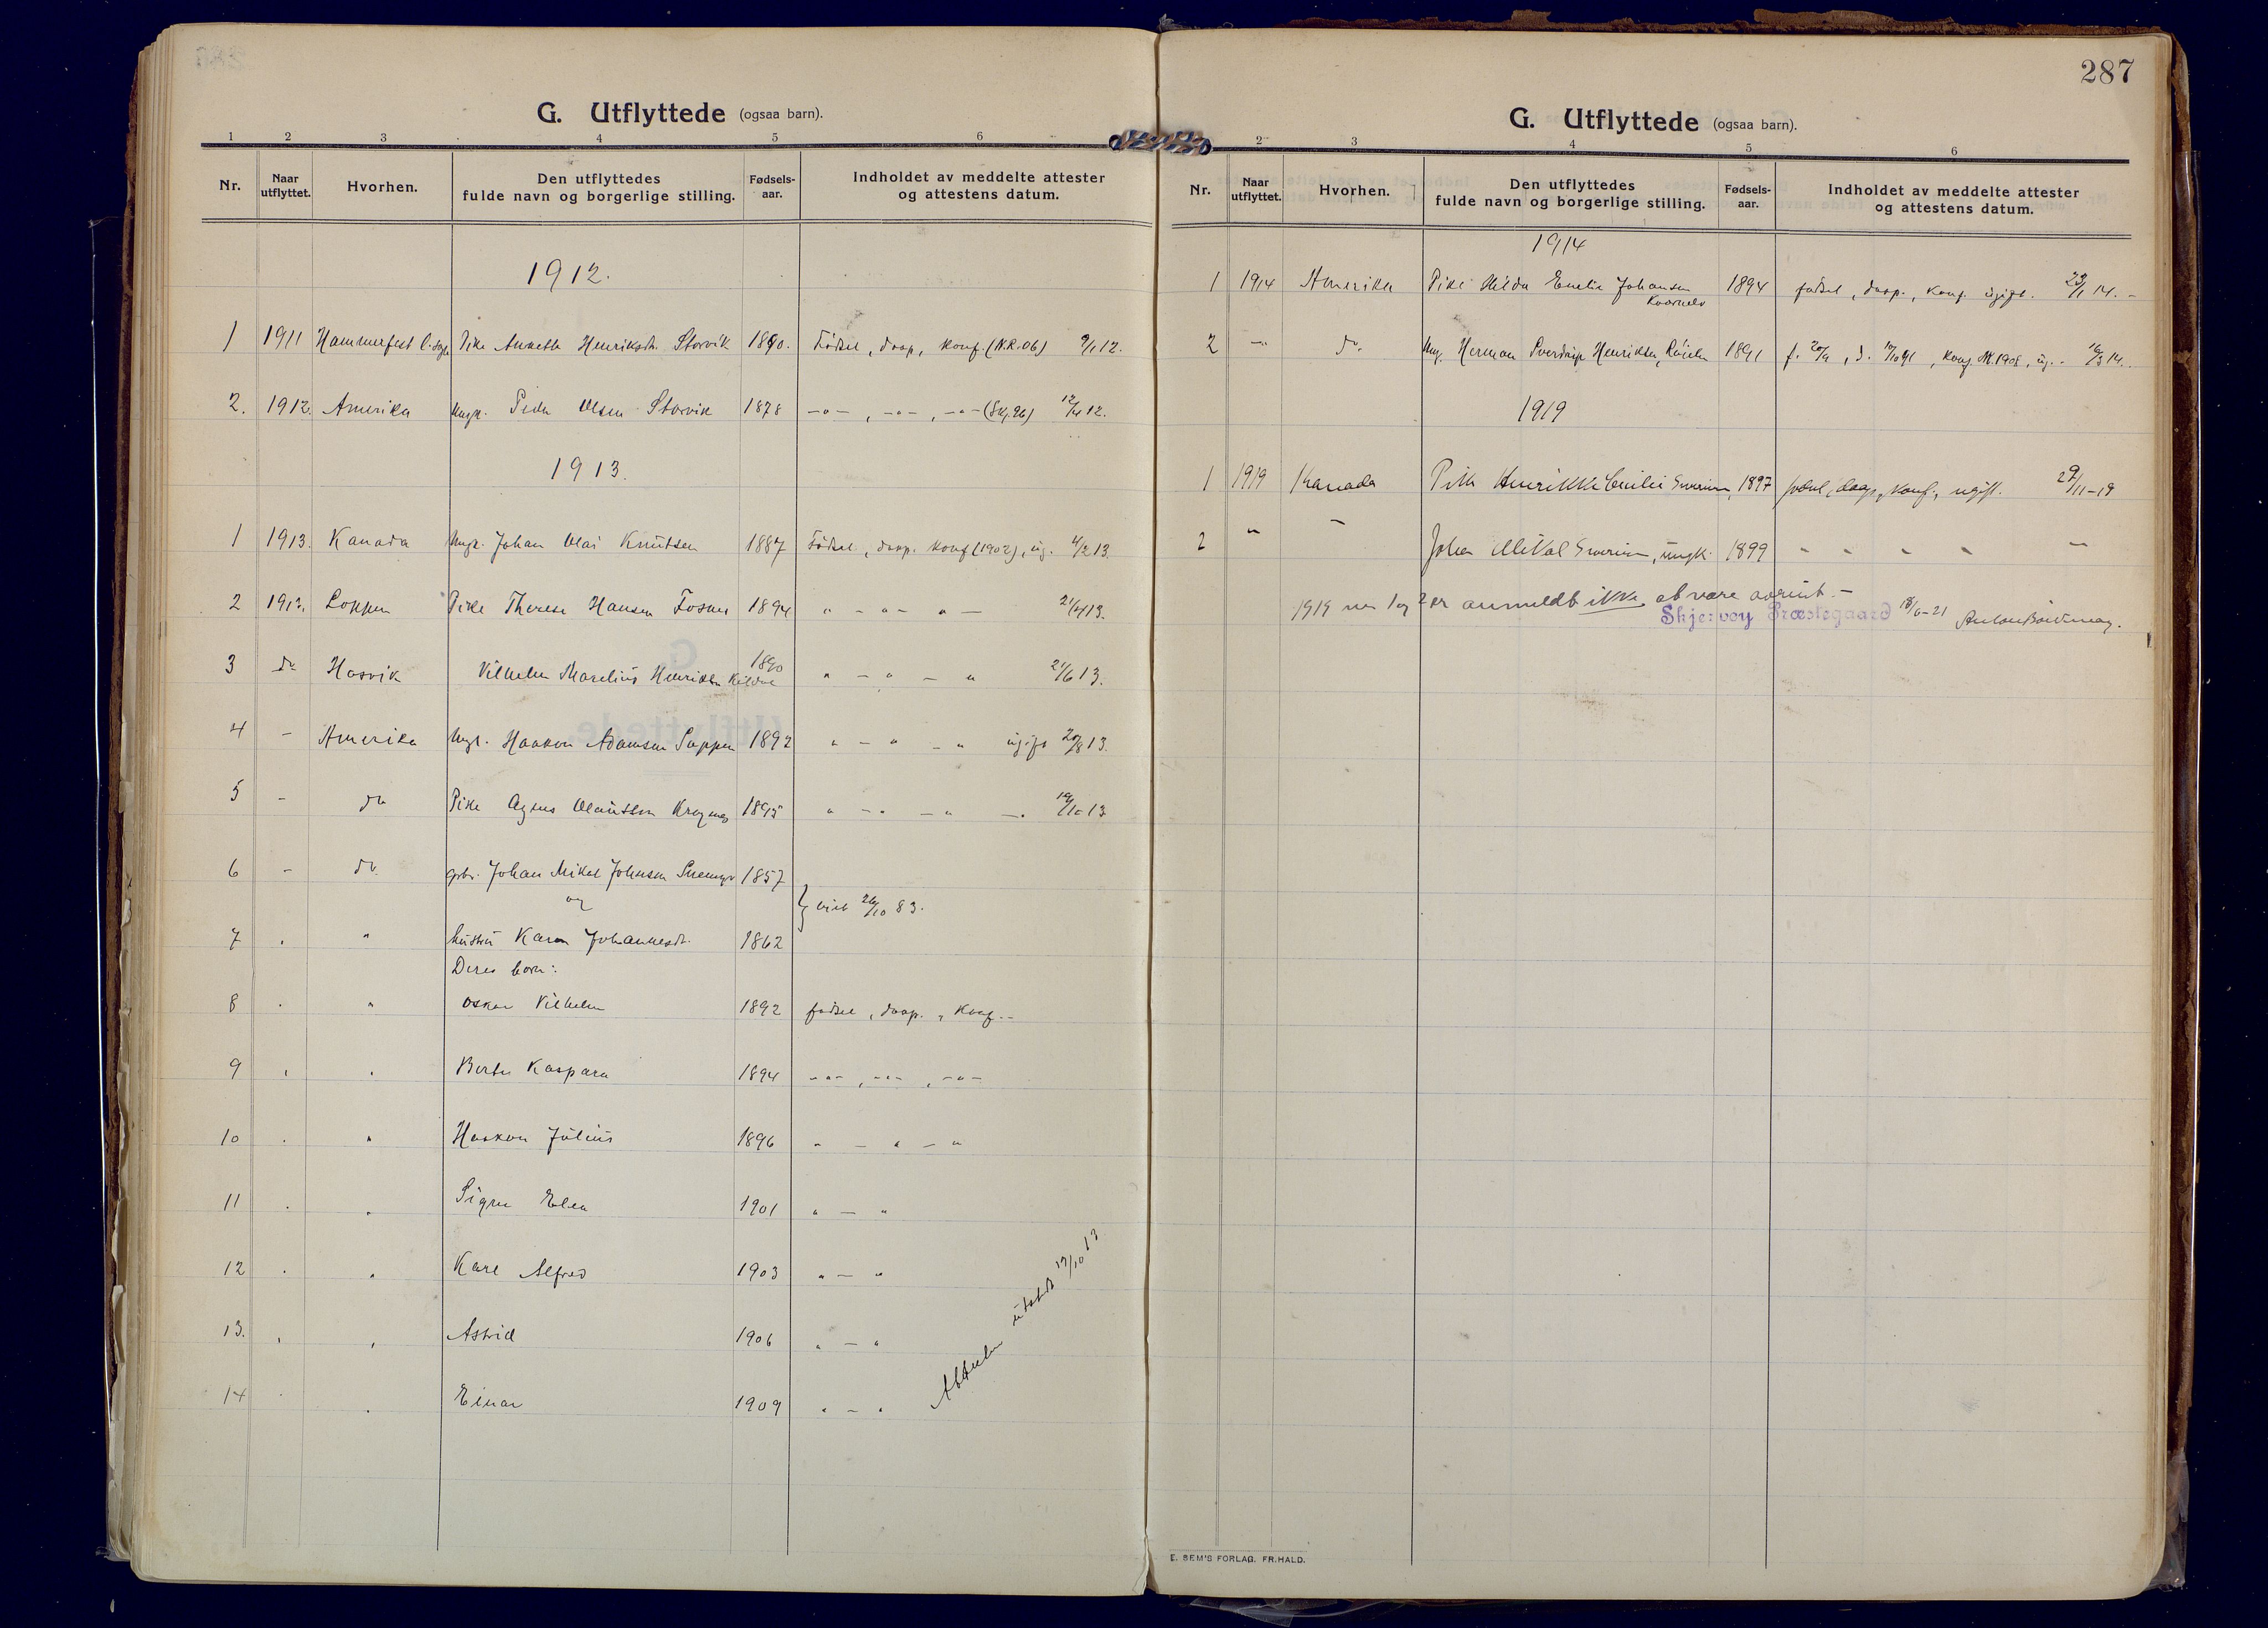 G. Utflyttede (ogsaa barn).
1 2 3 4 5 6
Nr. Naar utflyttet. Hvorhen. Den utflyttedes fulde navn og borgerlige stilling. Fødsels-aar. Indholdet av meddelte attester og attestens datum.
1912.
1 1911 Hammerfest l.sogn Pike Annette Henriksdt. Storvik 1890. Fødsel, daap, konf. (N.R. 06) 9/1 12.
2. 1912. Amerika Ungk. Peder Olsen Storvik 1878 -"-, -"-, -"- (Skj. 96) 12/4 12.
1913.
1 1913. Kanada Ungk. Johan Olai Knutsen 1887 Fødsel, daap. konf (1902), ug. 4/2 13.
2 1913. Loppen Pike Therese Hansen 1894 " - " - " - 21/4 13.
3 do Hasvik Vilhelm Marelius Henriksen Kildal 1890 " - " - " 21/6 13.
4 - Amerika Ungk. Haakon Adamsen Suppen 1892 " - " - " ugift 20/8 13.
5 - do Pike Agnes Olausen 1895 " - " - " - " 10 13
6 - do gbr. Johan Mikal Johnsen 1857
og
} viet 26/10 83.
7 " " hustru Karen Johannesdt. 1862
Deres born:
8 " " Oskar Vilhelm 1892 fødsel, daap., konf. -
9 " " Berte Kaspara 1894 -"-, -"-, -"-
10 " " Haakon Julius 1896 " - " - "
11 " " Signe Elen 1901 " - "
12 " " Karl Alfred 1903 " - "
13. " " Astrid 1906 " - "
14 " " Einar 1909 " - "
Attester utstedt 17/10 13
287
G. Utflyttede (ogsaa barn).
2 3 4 5 6
Nr. Naar utflyttet. Hvorhen. Den utflyttedes fulde navn og borgerlige stilling. Fødsels-aar. Indholdet av meddelte attester og attestens datum.
1914
1 1914 Amerika Pike Hilda Emelie Johansen Kvænelv 1894 fødsel, daap., konf. ugift. 1 14. -
2 -"- do. Ung. Herman Sverdrup Henriksen, 1891 f. 20/9, d. 91, konf. 1908, ug. - 16/3 14.
1919
1 1919 Kanada Pike Henrikke Cecilie 1897 fødsel, daap, konf., ugift. 29/11-19
2 " - Johan Mikal, ungk. 1899 " " " " "
1919 nr 1 og 2 er anmeldt ikke at være avreist. -
Skjervøy Præstegaard 18/6-21 Anton
E. SEM'S FORLAG. FR.HALD.